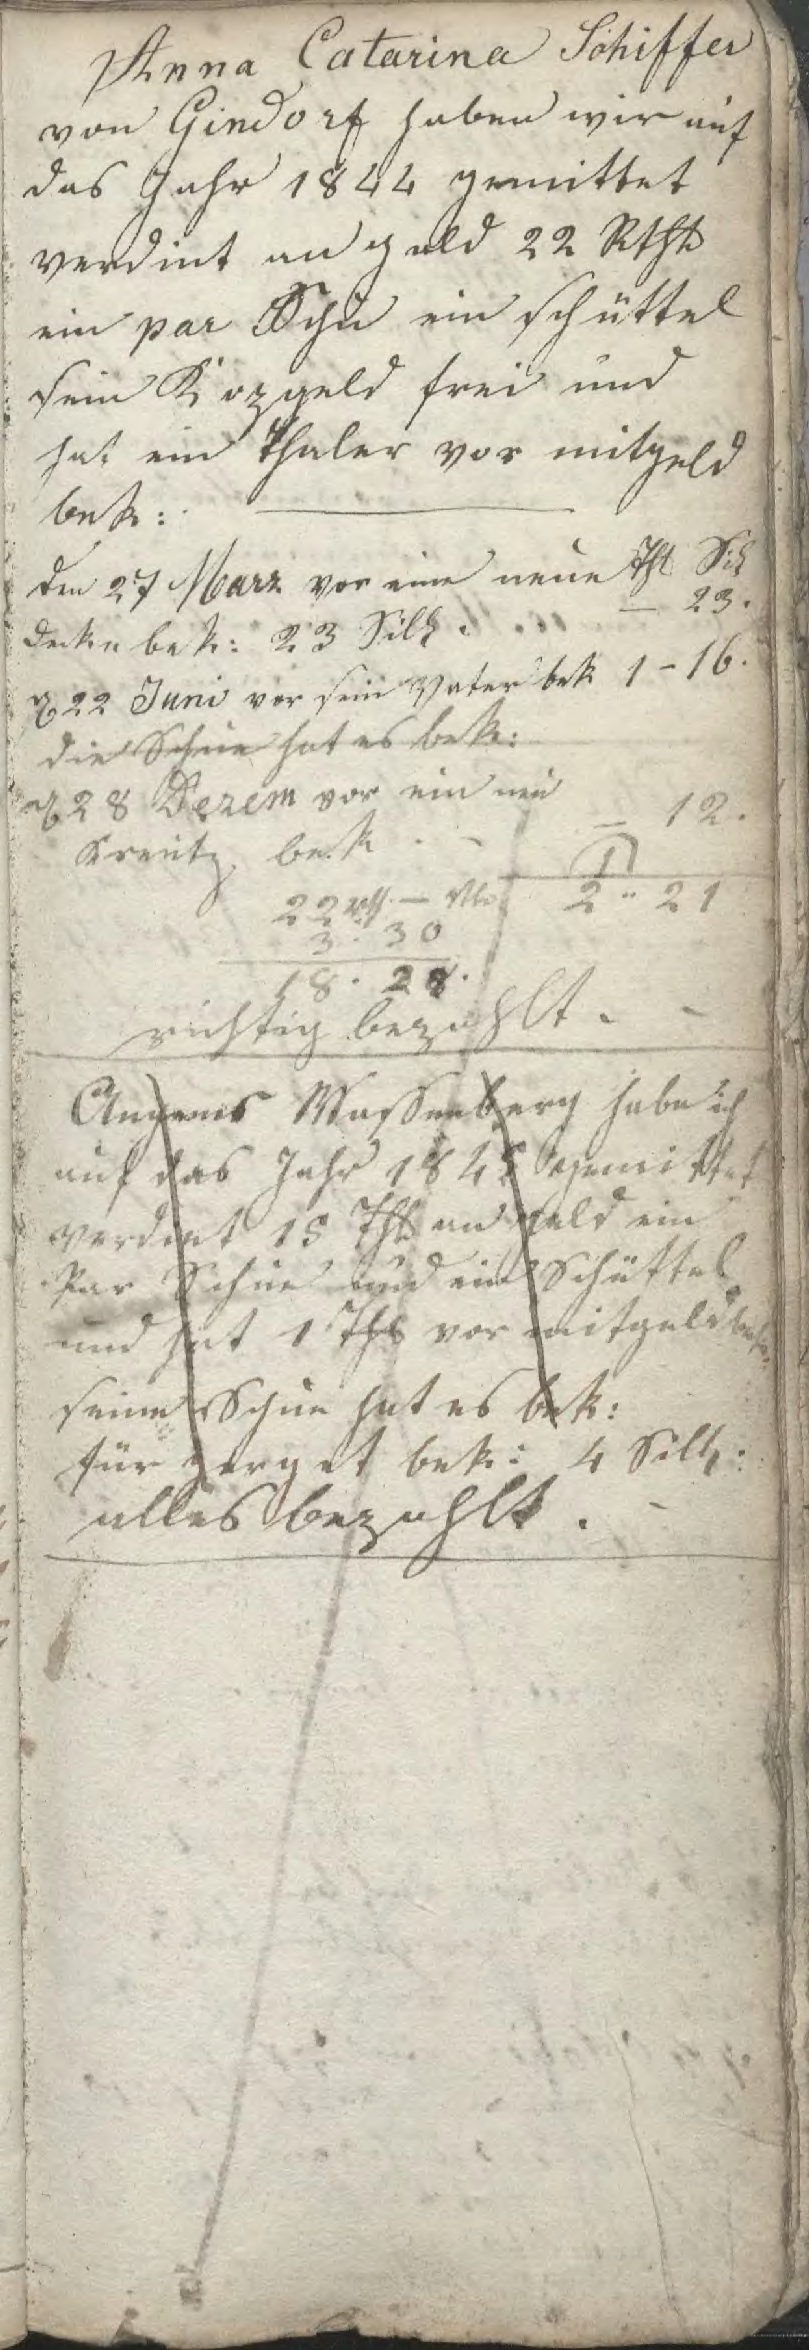 Anna Catarina Schiffer
von Gindorf haben wir auf
das Jahr 1844 gemittet
verdint an geld 22 Rthl
ein par Schu ein schüttel
sein Kozgeld frei und
hat ein Thaler vor mitgeld
bek:
den 27 Marz vor eine neue Thl Silb
decke bek: 23 Silb. — 23.
22 Juni vor sein Vater bek 1 - 16.
die Schue hat es bek:
28 Dezem vor ein neu
Kreutz bek — 12.
22 — 2 " 21
3 : 30
18 . 28.
richtig bezahlt.
Angenes Wassenberg habe ich
auf das Jahr 1845 gemittet
verdint 15 Thl an geld ein
Par Schue und ein Schüttel
und hat 1 Thl vor mitgeld bek:
seine Schue hat es bek:
für bek: 4 Silb:
alles bezahlt.